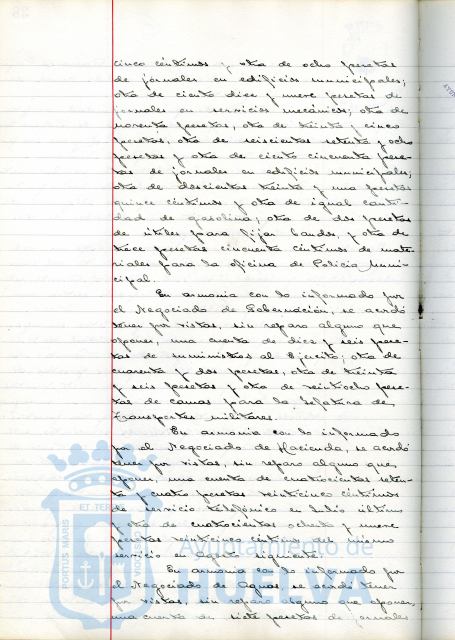 cinco céntimos y otra de ocho pesetas
de jornales en edificios municipales;
otra de ciento diez y nueve pesetas de
jornales en servicios mecánicos; otra de
noventa pesetas, otra de treinta y cinco
pesetas, otra de seiscientas setenta y ocho
pesetas y otra de ciento cincuenta pese-
tas de jornales en edificios municipales;
otra de doscientas treinta y una pesetas
quince céntimos y otra de igual canti-
dad de gasolina; otra de dos pesetas
de útiles para fijar bandos, y otra de
trece pesetas cincuenta céntimos de mate-
riales para la oficina de Policía Muni-
cipal.
En armonía con lo informado por
el Negociado de Gobernación, se acordó
tener por vistas, sin reparo alguno que
oponer, una cuenta de diez y seis pese-
tas de suministros al Ejército; otra de
cuarenta y dos pesetas, otra de treinta
y seis pesetas y otra de veintiocho pese-
tas de camas para la Jefatura de
Transportes militares.
En armonía con lo informado
por el Negociado de Hacienda, se acordó
tener por vistas, sin reparo alguno que
oponer, una cuenta de cuatrocientas seten-
ta y cuatro pesetas veinticinco céntimos
de servicio telefónico en Julio último
y otra de cuatrocientas ochenta y nueve
pesetas veinticinco céntimos del mismo
servicio en el siguiente.
En armonía con lo informado por
el Negociado de Aguas se acordó tener
por vistas, sin reparo alguno que oponer,
una cuenta de siete pesetas de jornales
Ayuntamiento de
HUELVA
PORTUS MARIS
ET TER